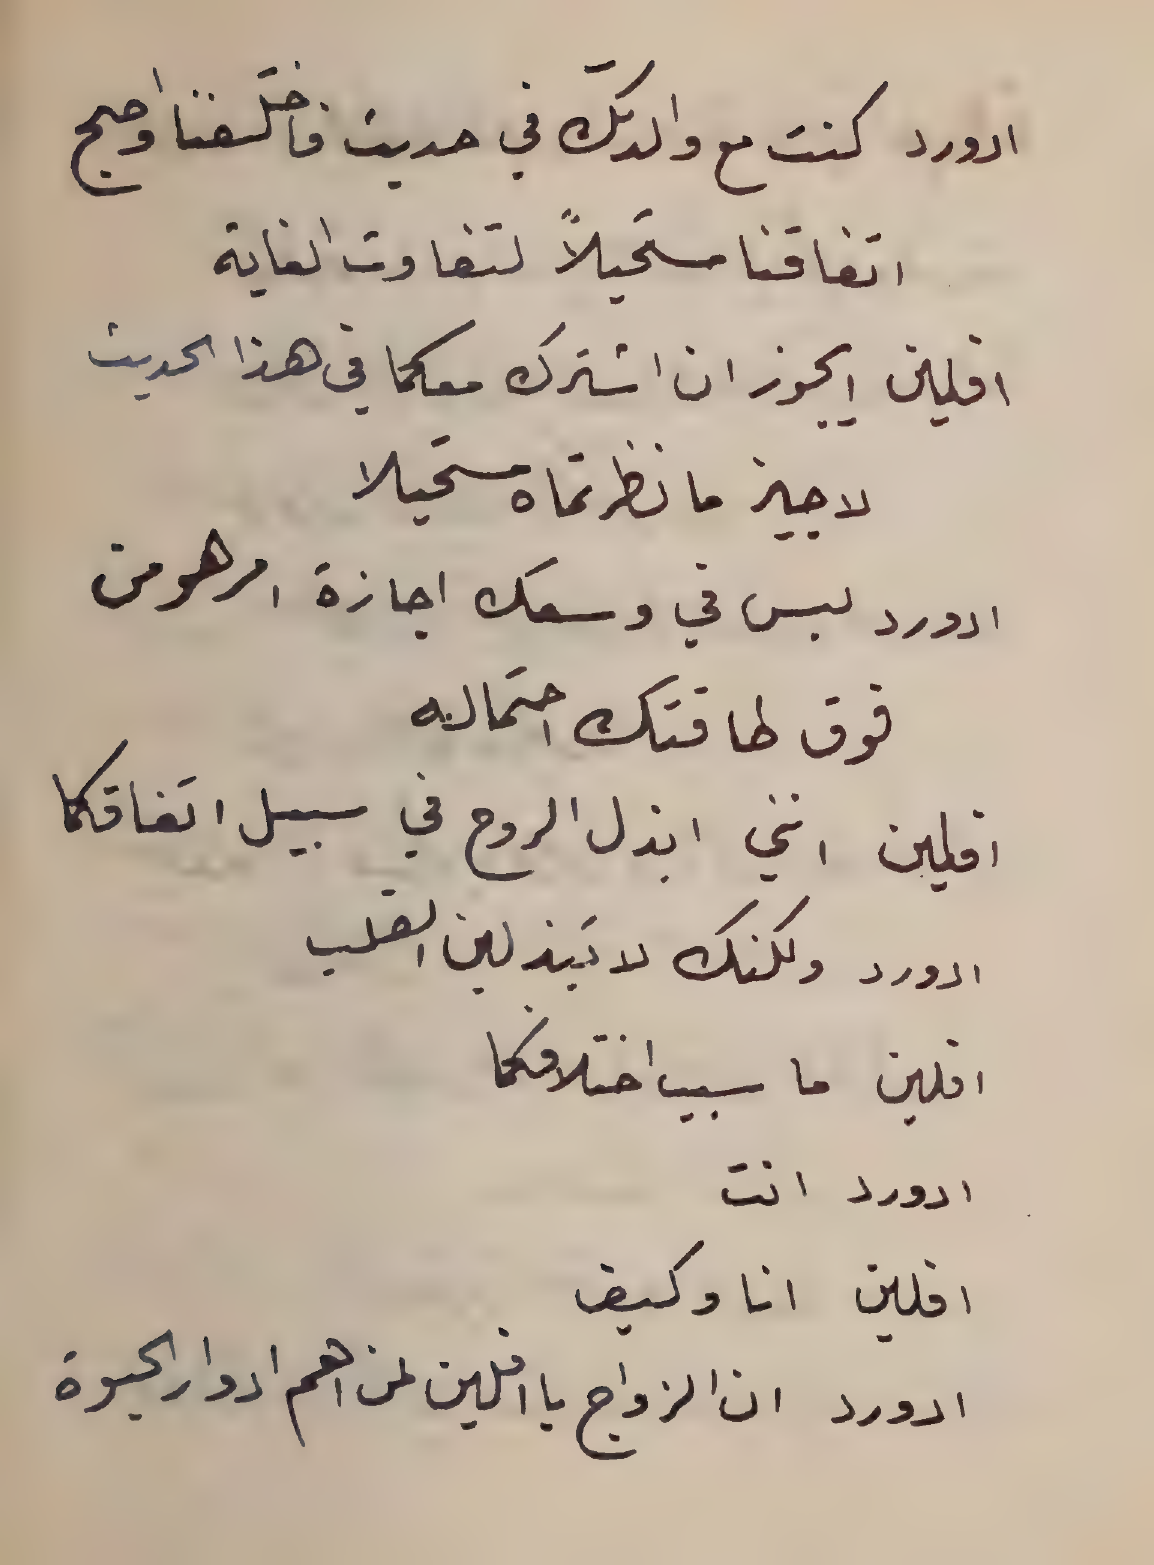 ادورد كنت مع والدتك في حديث فاختلفنا واصبح
اتفاقنا مستحيلاً لتفاوت الغاية
افلين ايجوز ان اشترك معكما في هذا الحديث
لاجيز ما نظرتماه مستحيلا
ادورد ليس في وسعك اجازة امر هو من
فوق طاقتك احتماله
افلين انني ابذل الروح في سبيل اتفاقكما
ادورد ولكنك لا تبذلين القلب
افلين ما سبب اختلافكما
ادورد انت
افلين انا وكيف
ادورد ان الزواج يا افلين لمن اهم ادوار الحيوة